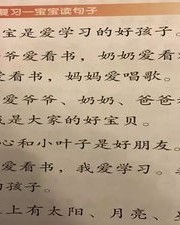 复习一宝宝读句子
宝是爱学习的好孩子。
爷爱看书，奶奶爱看
爱看书，妈妈爱唱歌。
爱爷爷、奶奶、爸爸
是大家的好宝贝。
心和小叶子是好朋友。
爱看书，我爱学习。
的孩子。
上有太阳、月亮、